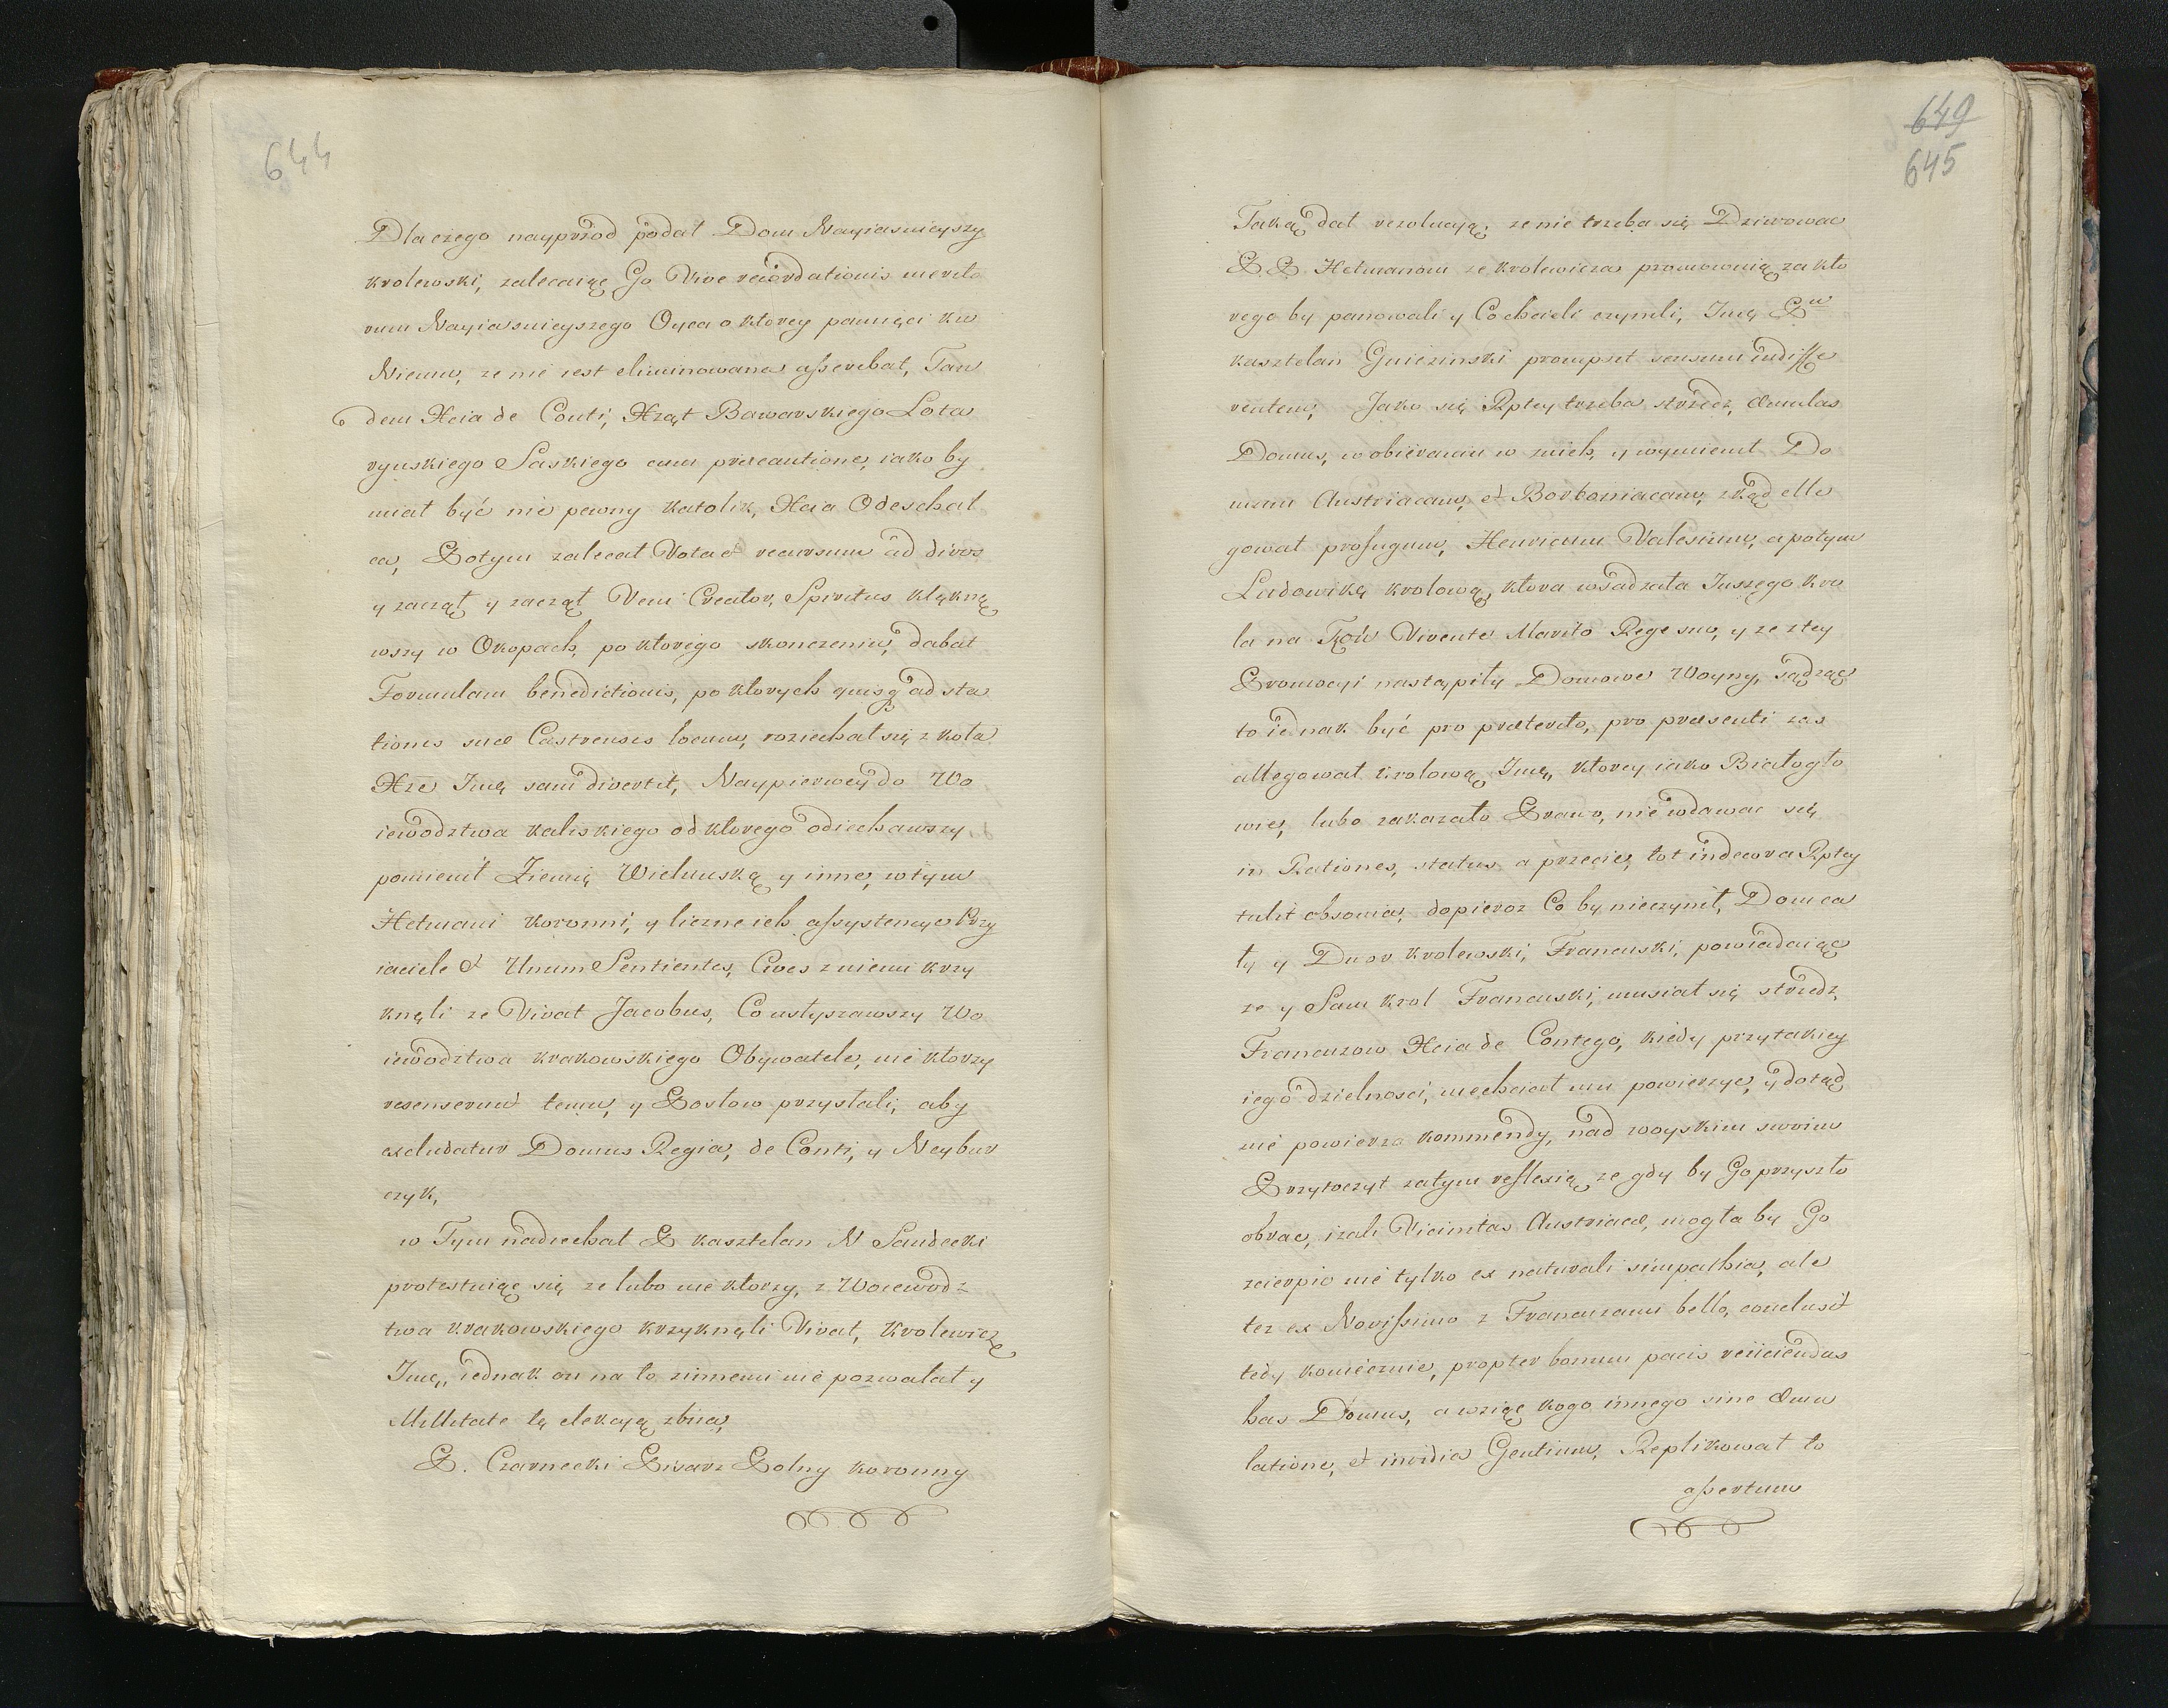 644
Dla czego nayprzod podał Dom Nayiasnieyszy
krolewski, zalecaiąc Go Vive recordationis merito
rum Nayiasnieyszego Oyca o ktorey pamięci ku
Niemu, ze nie iest eliminowana asserebat, Tan
dem Xcia de Conti, Xżąt Bawarskiego Lota
ryuskiego Saskiego cum precautione, iako by
miał być nie pewny katolik, Xcia Odeschal
ca, Potym zalecał Vota et recursum ad divos
y zaczął y zaczął Veni Creator, Spiritus klękną
wszy w Okopach, po ktorego skonczeniu, dabat
Formulam benedictionis, po ktorych quisq ad sta
tiones suae Castrenses locum, roziechał się z koła
Xze Jmę sam divertit, Naypierwey do Wo
iewodztwa kaliskiego od ktorego odiechawszy
pomienił Ziemię Wielunską y inne, w tym
Hetmani koronni, y liczne ich assystencye Przy
iaciele et Unum Sentientes, Cives z niemi krzy
knęli ze Vivat Jacobus, Co usłyszawszy Wo
iewodztwa krakowskiego Obywatele, nie ktorzy
resenserunt temu, y Posłow przystali, aby
excludatur Domus Regia, de Conti, y Neybur
czyk,
w Tym nadiechał P kasztelan N Sandecki
protestuiąc się ze lubo nie ktorzy, z Woiewodz
twa krakowskiego krzyknęli Vivat, Krolewicz
Jmę, iednak on na to z innemi nie pozwalał y
Millitate tę elekcyą zbiia,
P. Czarnecki Pisarz Polny koronny
649
645
Taką dał rezolucyą, ze nie trzeba się Dziwować
P.P. Hetmanom ze krolewicza promowuią za kto
rego by panowali y Co chcieli czynili, Jmę Pu
kasztelan Gnieznski prompsit sensum indiffe
rentem, Jako się Rptey trzeba strzedz, Æmulas
Domus, w obieraniu w nich, y wymienił Do
mum Austriacam, et Borboniacam, zkąd elle
gował profugum, Henricum Valesium, a potym
Ludowikę krolową, ktora wsadzała Juszego kro
la na Tron Vivente Marito Rege suo, y ze z tey
Promocyi nastąpiły Domowe Woyny, sądząc
to iednak być pro præterito, pro præsenti zas
allegował krolową Jmę, ktorey iako Białogło
wie, lubo zakazało Prawo, nie wdawac się
in Rationes, status a przecie, tot indecora Rptey
tulit obsonia, dopieroz Co by nieczynił, Dom ca
ły y Dwor krolewski, Francuski, powiadaiąc
ze y Sam krol Francuski, musiał się strzedz,
Francuzow Xcia de Contego, kiedy przy takiey
iego dzielnosci, niechciał mu powierzyc, y dotąd
nie powierza kommendy, nad woyskim swoim
Przytoczył zatym reflexią ze gdy by Go przyszło
obrac, izali Vicinitas Austriacæ, mogła by Go
zcierpic nie tylko ex naturali simpathia, ale
tez ex Novissimo z Francuzami bello, conclusit
tedy koniecznie, propter bonum pacis reiiciendas
has Domus, a wziąc kogo innego sine Æmu
latione, et invidia Gentium, Replikował to
assertum